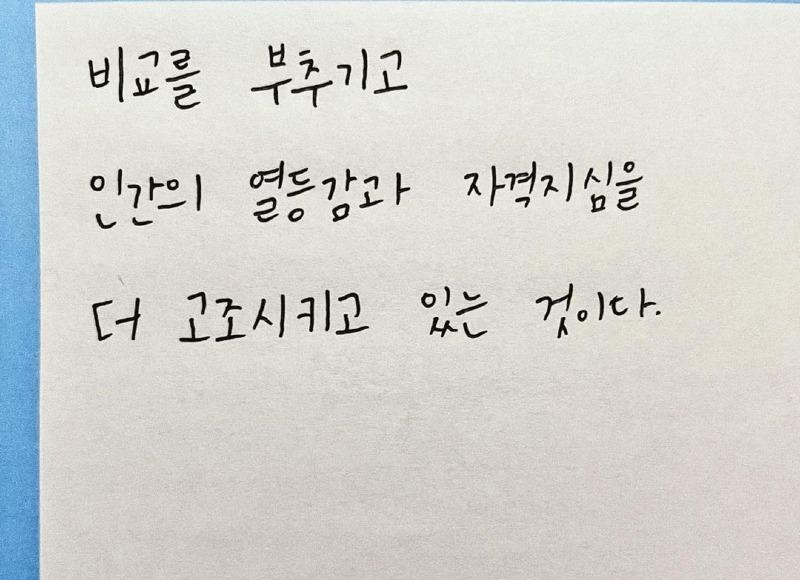 비교를 부추기고
인간의 열등감과 자격지심을
더 고조시키고 있는 것이다.